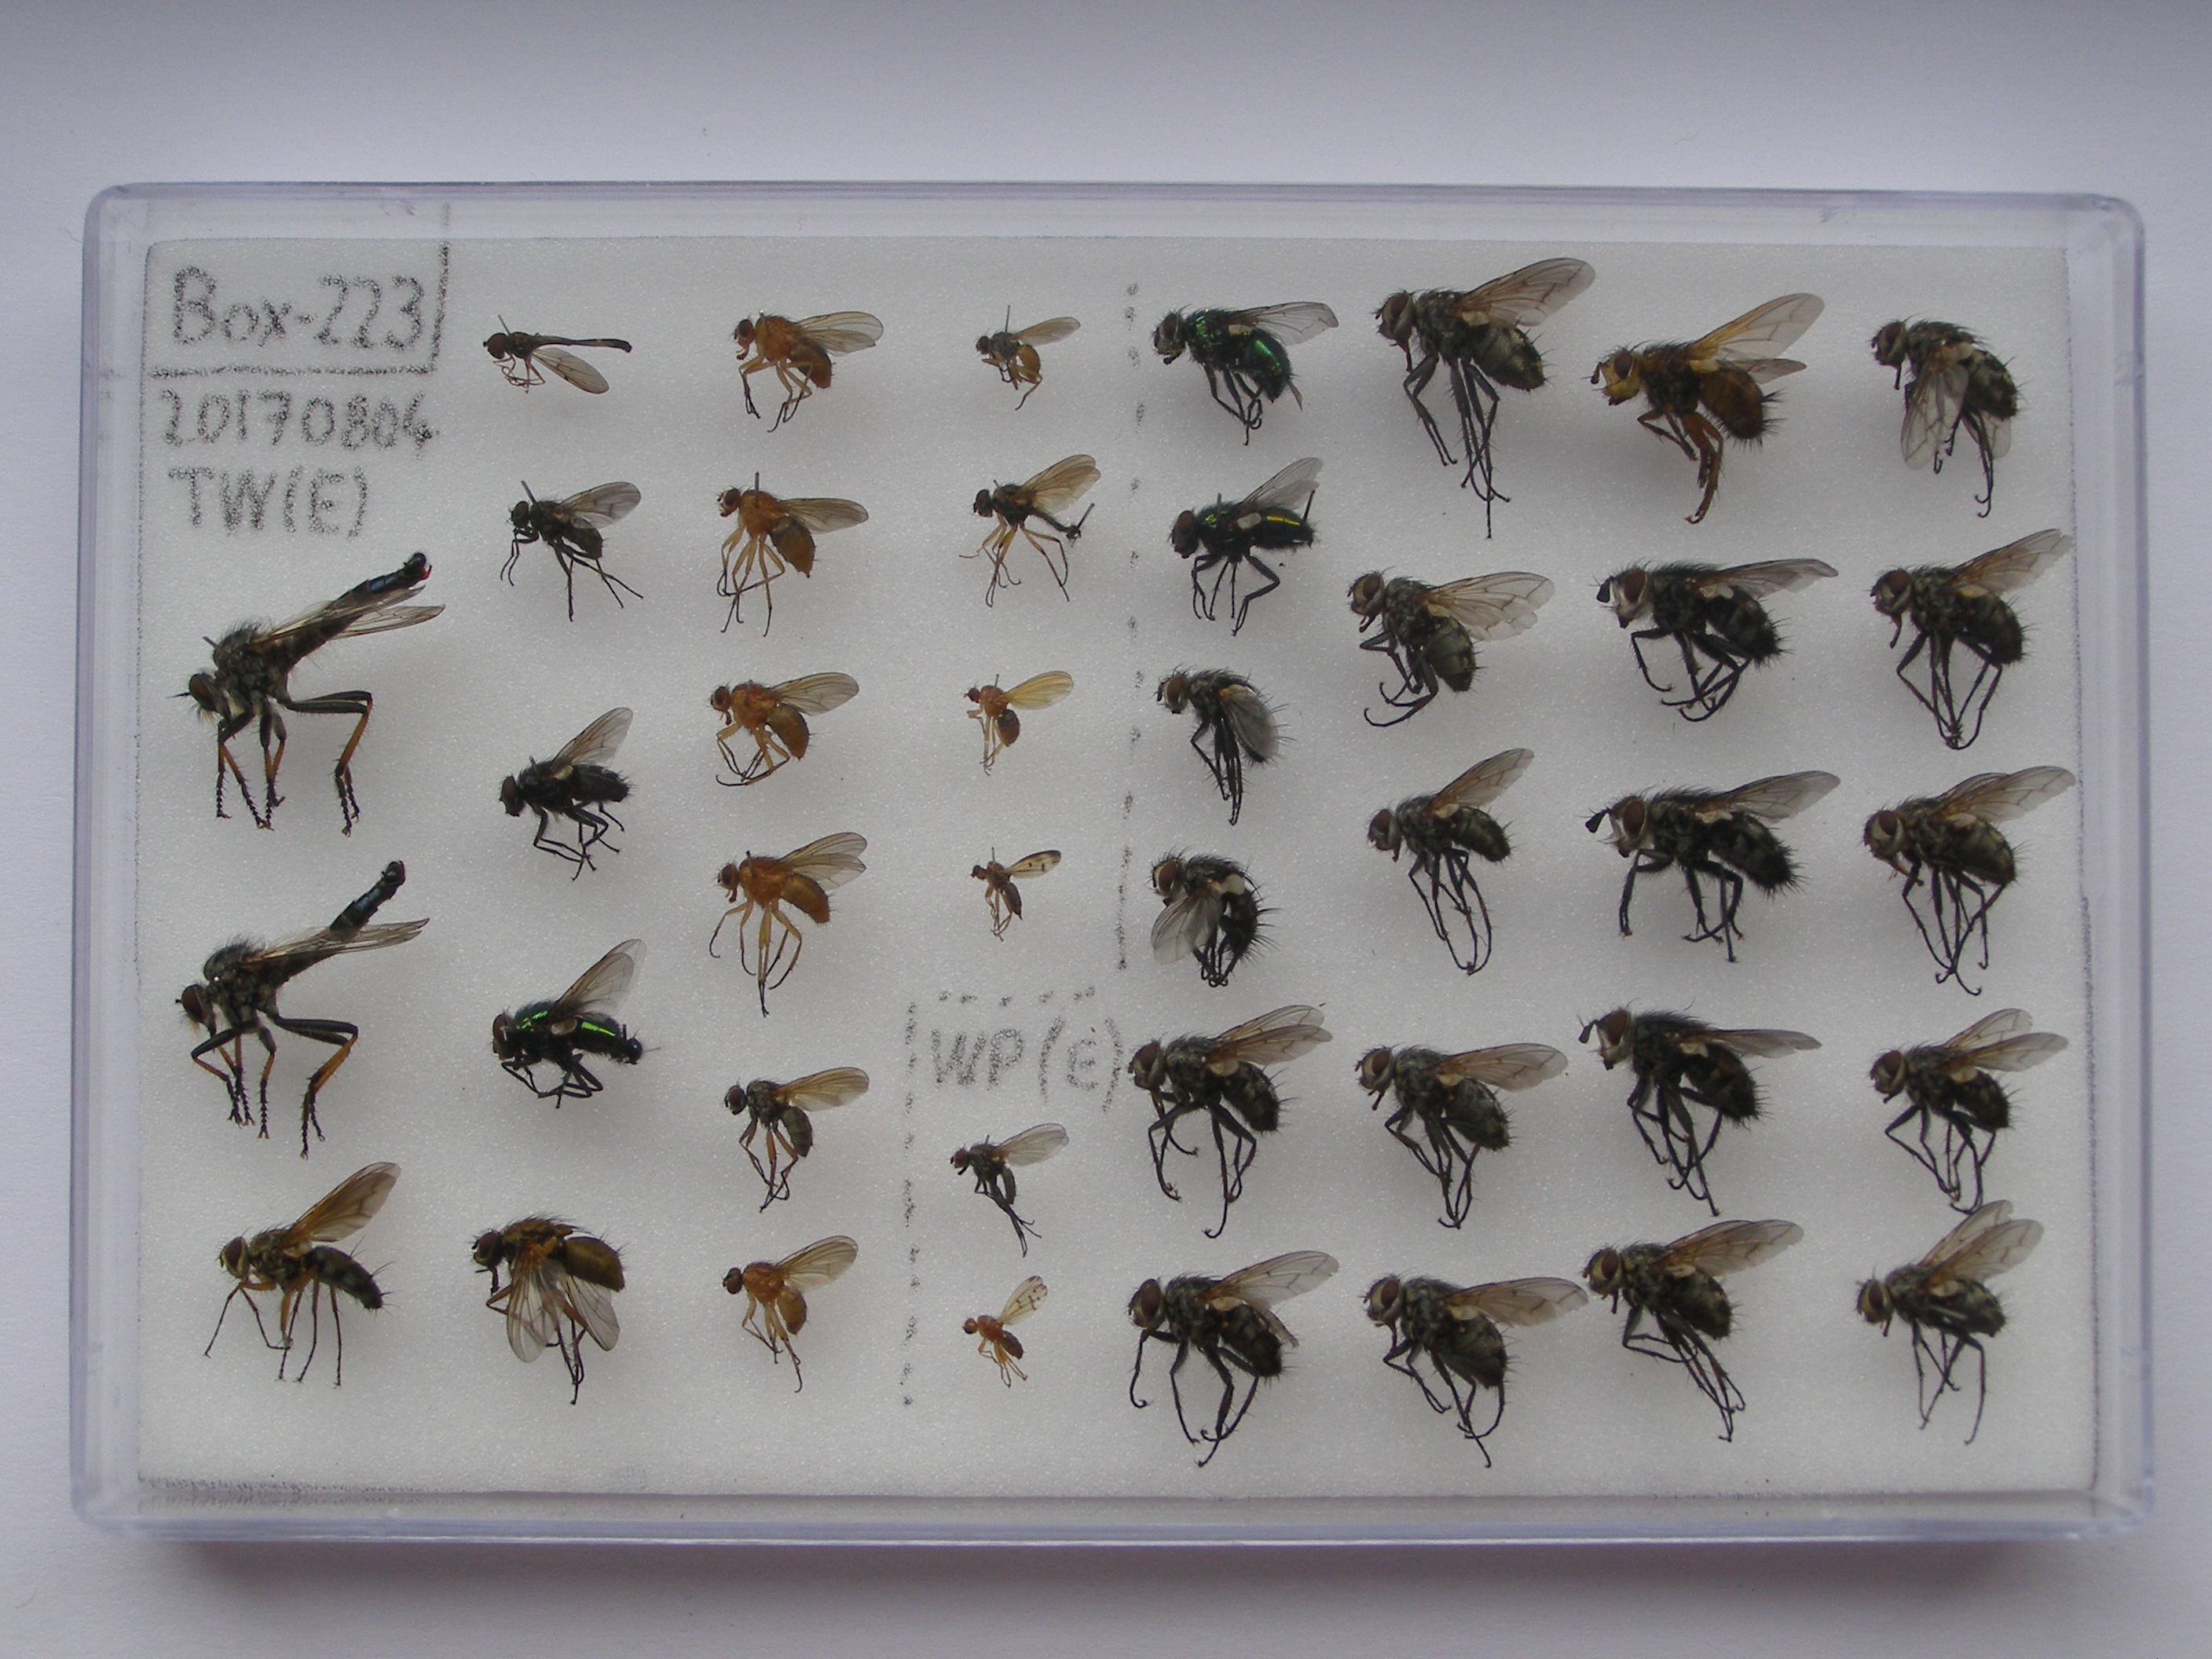 Box-223
20170804
TW(E)
WP(E)